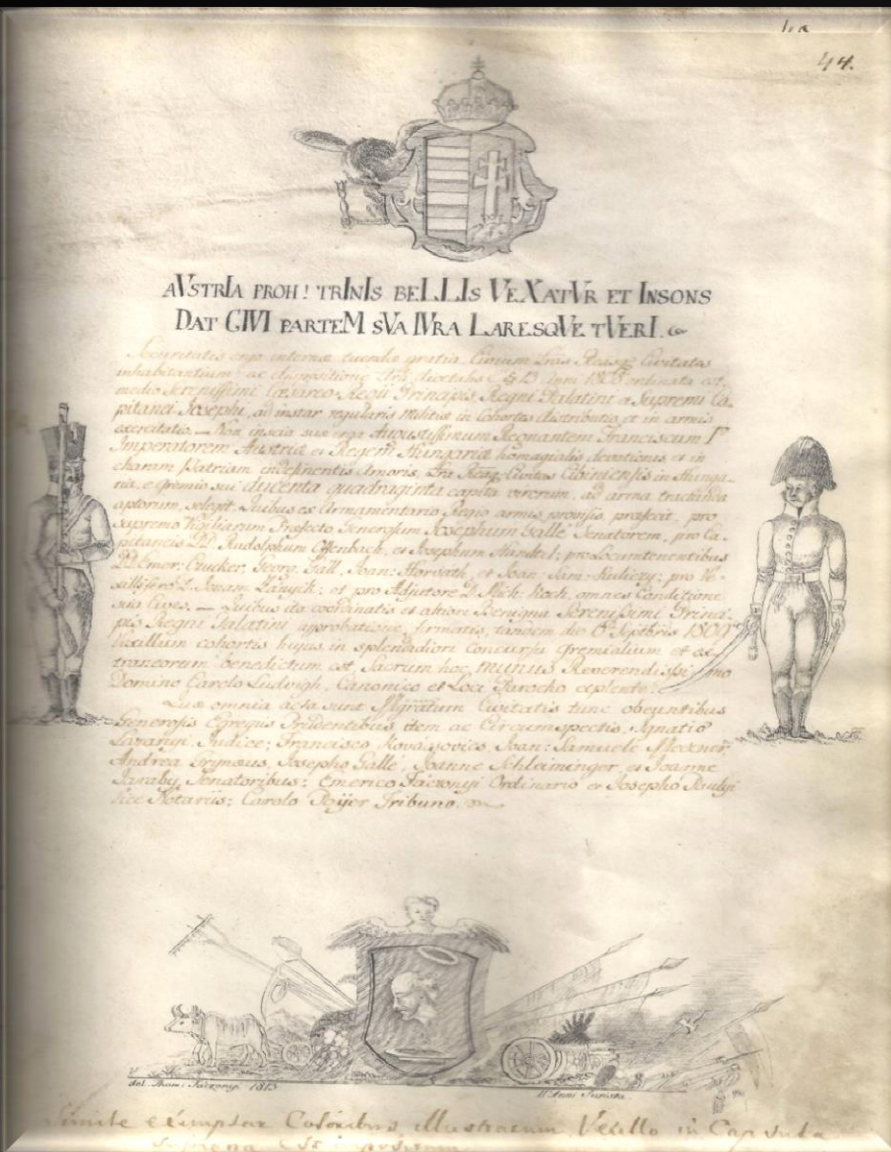 44.
AVSTRIA PROH! TRINIS BELLIS VEXATVR ET INSONS
DAT CIVI PARTEM SVA IVRA LARESQVE TVERI.
Securitatis ergo internæ tuendæ gratia, Civium Lras Reasq Civitates
inhabitantium: ac dispositione Articuli diætalis 1808 ordinata est
medio Serenissimi Cæsareo-Regii Principis Regni Palatini a Supremi Ca-
pitanei Josephi, ad instar regularis Militiæ in Cohortes distributio et in armis
exercitatio. — Non inscia suæ erga Augustissimum Regnantem Franciscum I
Imperatorem Austriæ et Regem Hungariæ homagialis devotionis et in
charam Patriam indesinentis Amoris, Lra Reaq Civitas Cibiniensis in Hunga-
ria, e gremio sui ducenta quadraginta capita virorum, ad arma tractanda
aptorum, selegit. Quibus ex Armamentario Regio armis provisis, præfecit, pro
supremo Vigiliarum Præfecto Generosum Josephum Gallé Senatorem, pro Ca-
pitaneis DD. Rudolphum Offenbach, et Josephum pro Locumtenentibus
DD. Emer. Georg. Gall, Joan. Horváth, et Joan. Sam. pro Ve-
xillifero D. Joannem et pro Adjutore D. Mich. Koch, omnes Conditione
sua Cives. — Quibus ita coordinatis et altiori Benigna Serenissimi Princi-
pis Regni Palatini approbatione firmatis, tandem die Septbris 1809
Vexillum cohortis hujus in splendidiori concursu gremialium et ex-
traneorum benedictum est, Sacrum hoc munus Reverendissimo
Domino Carolo Ludvigh, Canonico et Loci Parocho explente.
Quæ omnia acta sunt Mgratum Civitatis tunc obeuntibus
Generosis Egregiis Prudentibus item ac Circumspectis: Ignatio
Judice; Francisco Kovacsovics, Joan: Samuele
Andrea Josepho Gallé, Joanne Schleiminger, et Joanne
Senatoribus; Emerico Ordinario et Josepho Paulyi
Vice Notariis; Carolo Tribuno.
del. Thom: 1813
Simile exemplar Coloribus illustratum Vexillo in Capsula